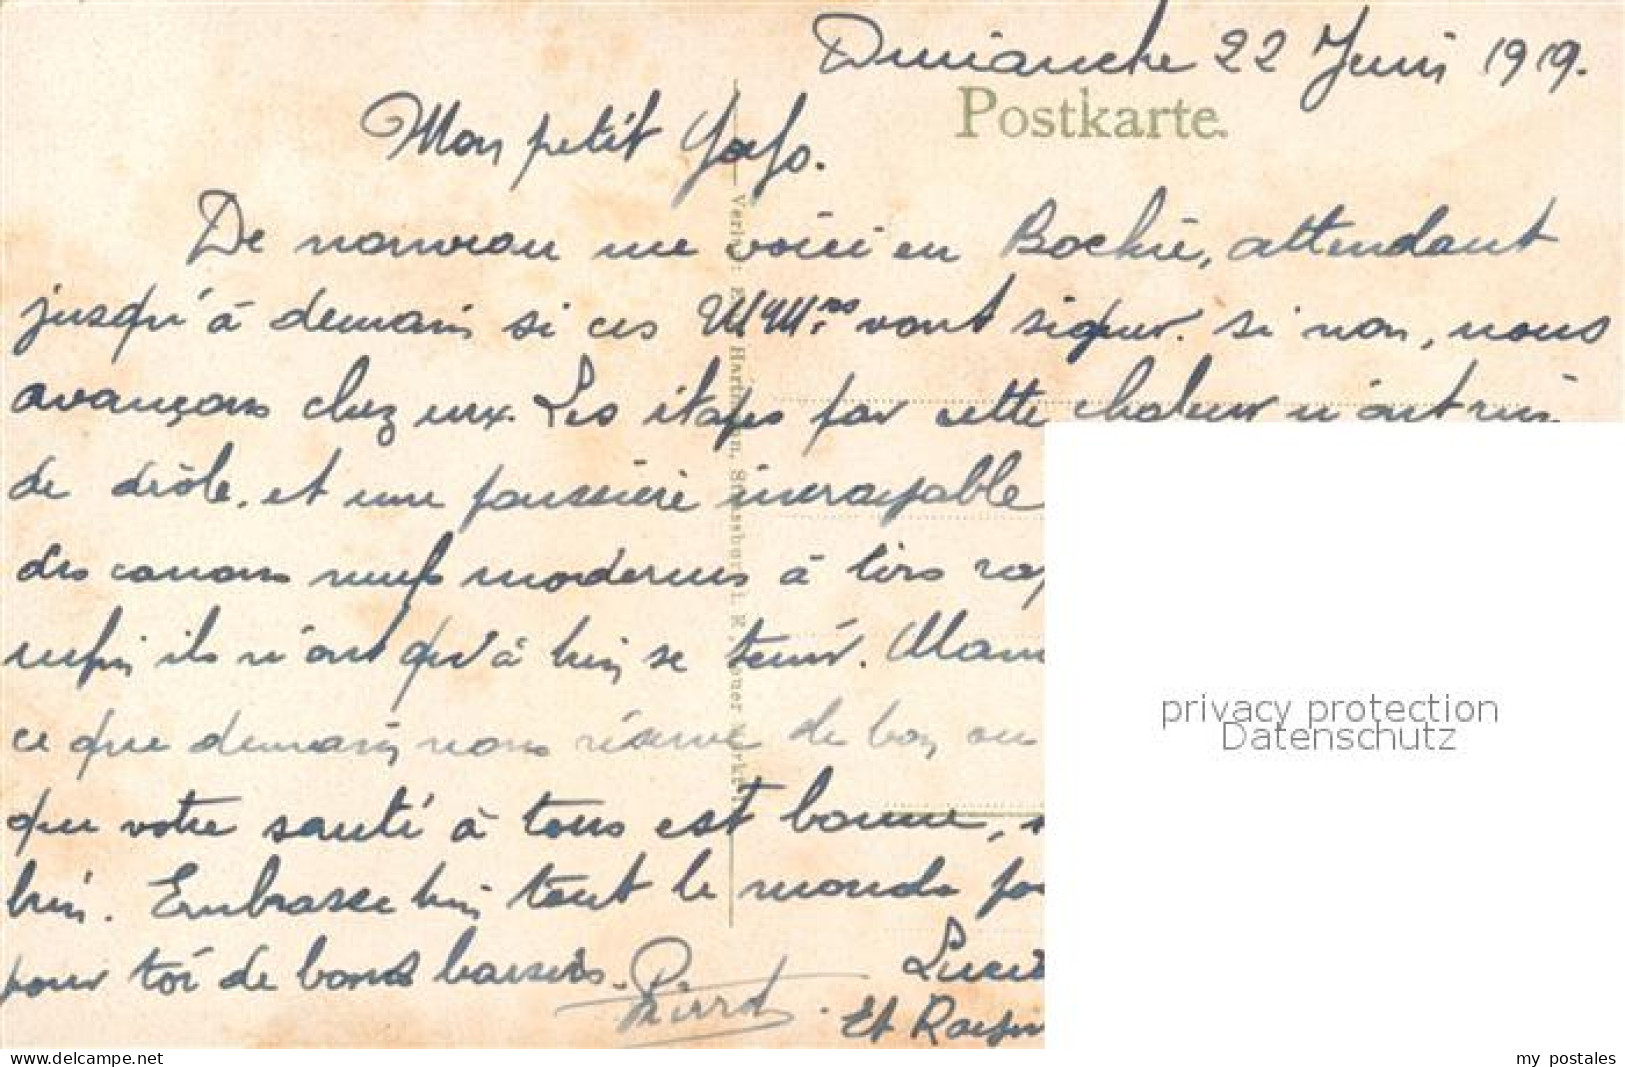 Dimanche 22 Juin 1919.
Postkarte.
Mon petit
De nouveau me voici en Bochie, attendant
jusqu'à demain si ces MM.rs vont signer. si non, nous
avançons chez eux. Les étapes par cette chaleur n'ont rien
de drôle, et une poussière incroyable
des canons neufs modernes à tirs
enfin ils n'ont qu'à bien se tenir.
ce que demain nous réserve de bon ou
que votre santé à tous est bonne,
bien. Embrasse bien tout le monde
pour toi de bons baisers. Pierrot.
Et
Verlag: Hartmann, Strassburg i. E.
privacy protection
Datenschutz
my postales
www.delcampe.net